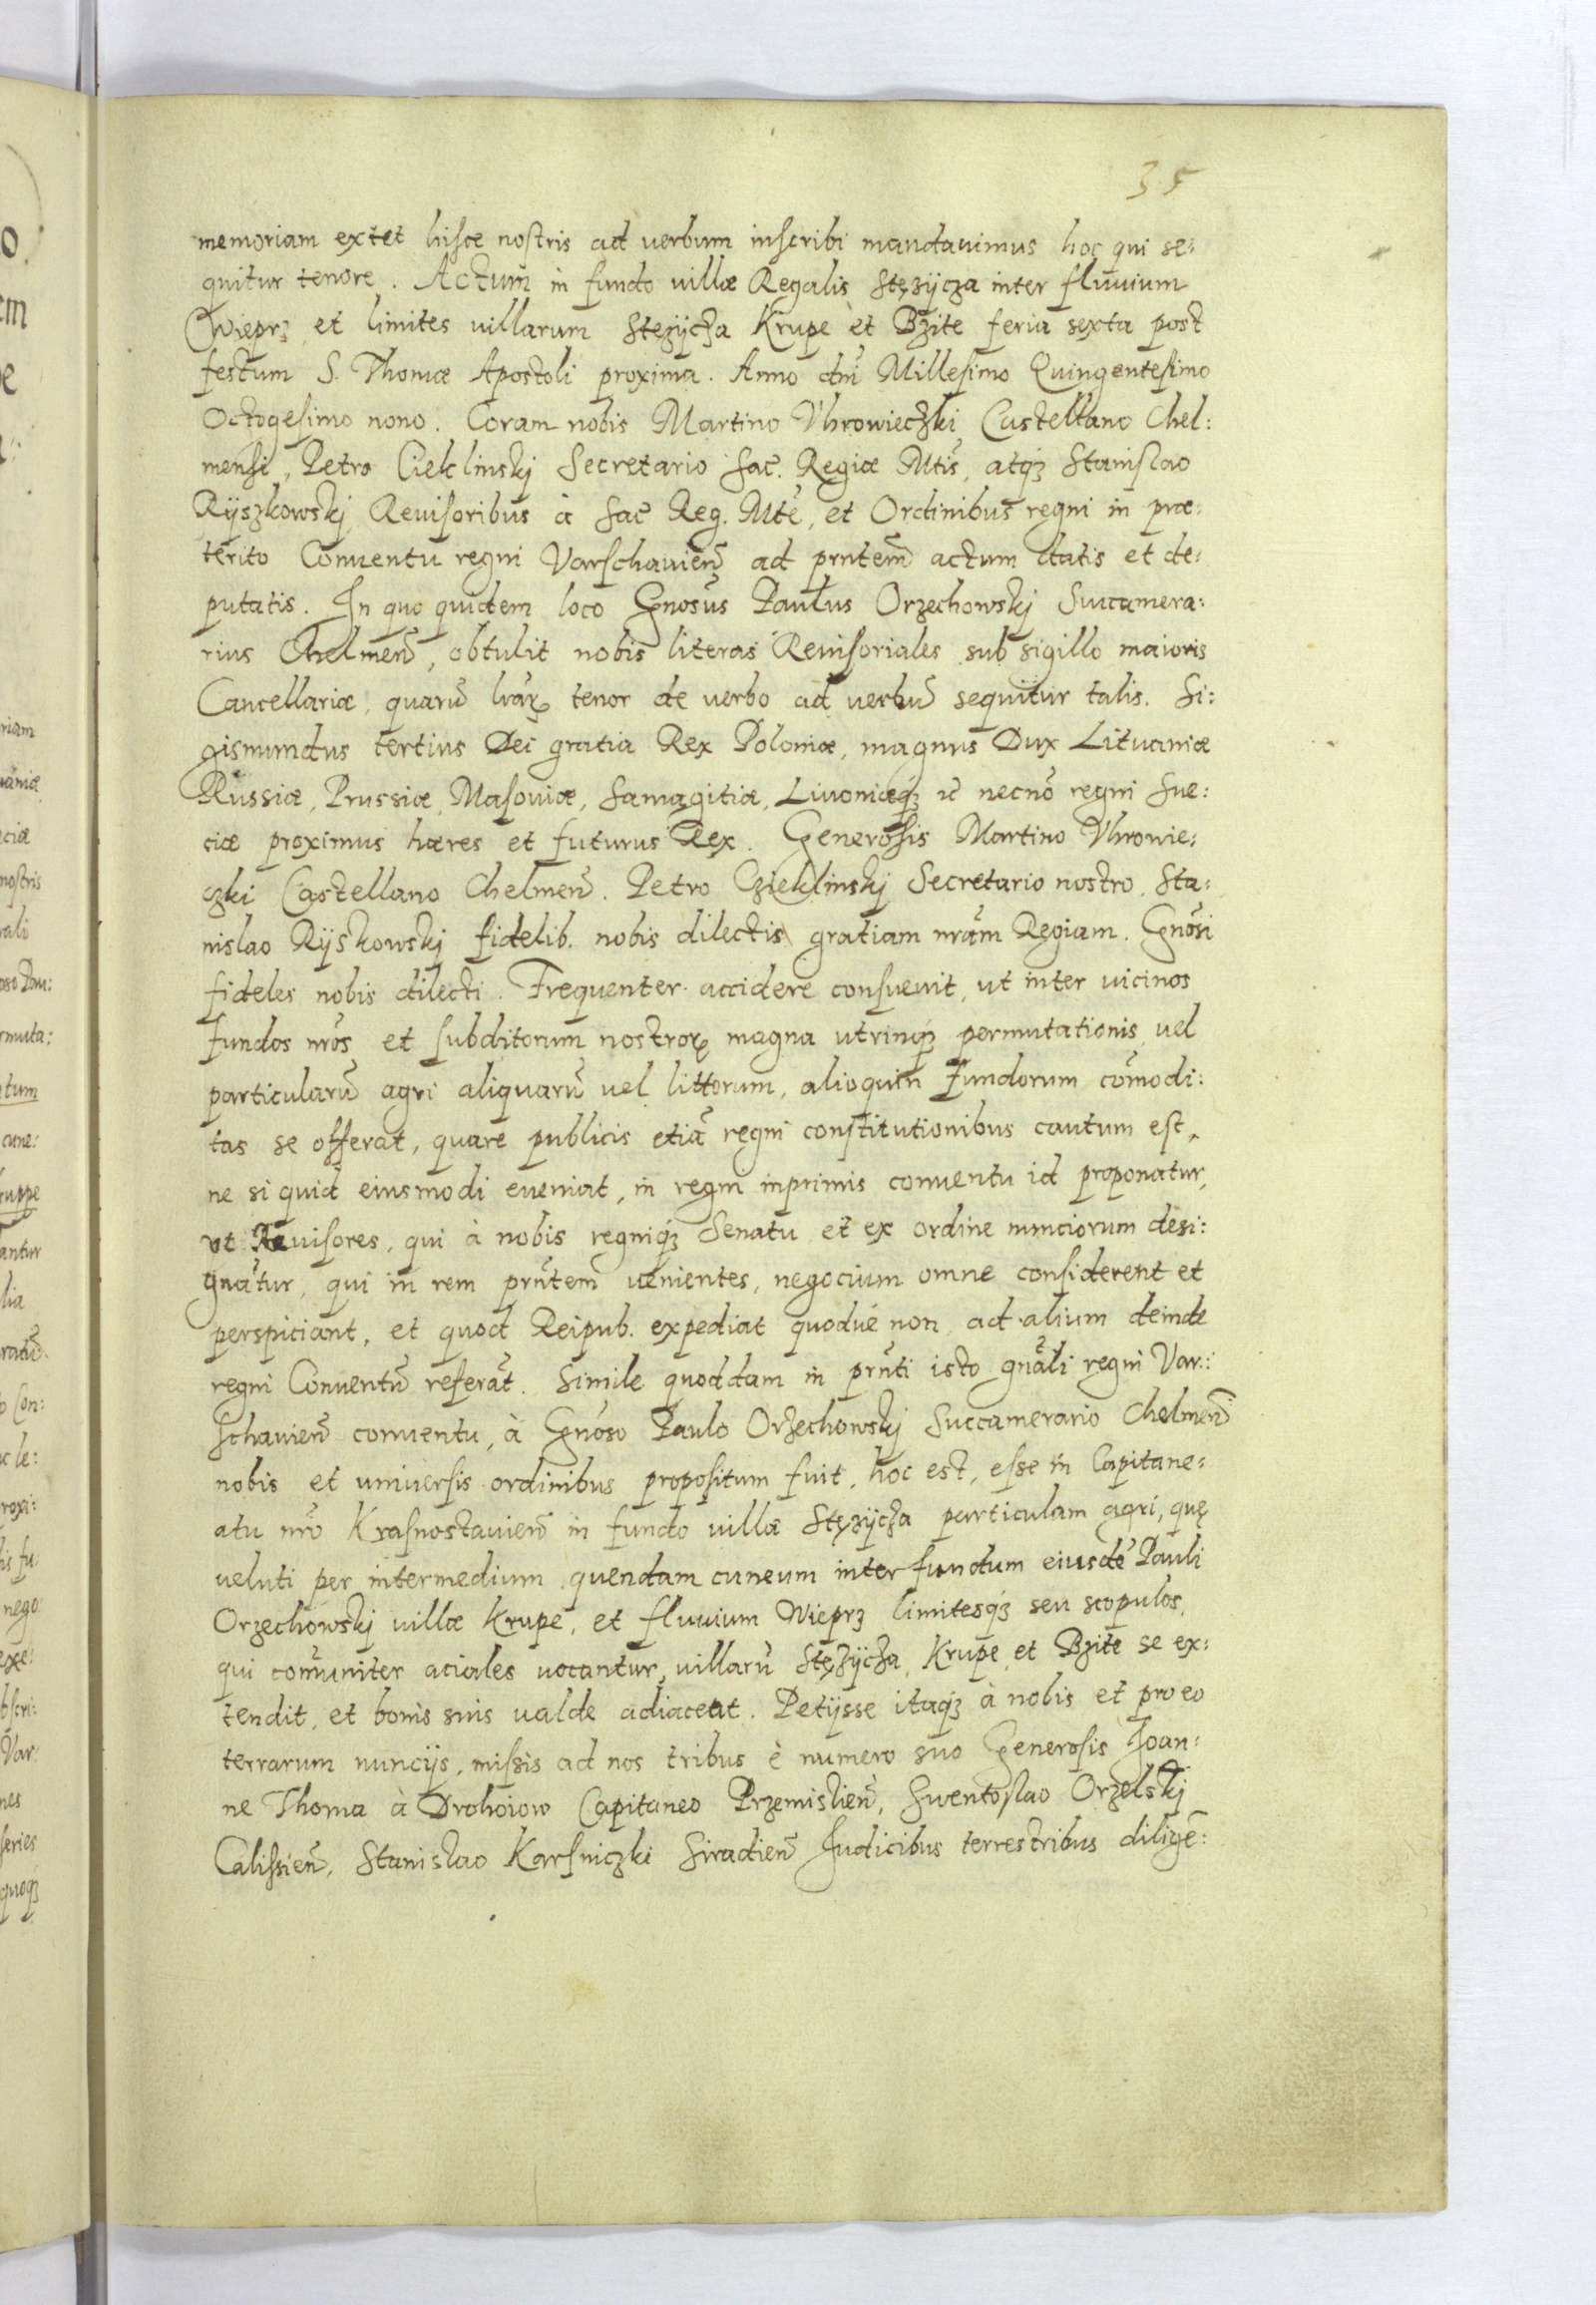 35
memoriam extet hisce nostris ad uerbum inscribi mandauimus hoc qui se:
quitur tenore. Actum in fundo uillæ Regalis Stężijcza inter fluuium
Wieprz et limites uillarum Stężijcza Krupe et Bzite feria sexta post
festum S. Thomæ Apostoli proxima. Anno dni Millesimo Quingentesimo
Octogesimo nono. Coram nobis Martino Vhrowieczki Castellano Chel:
mensi, Petro Cieklinskj Secretario Sac. Regiæ Mtis, atqȝ Stanislao
Rijszkowskj Reuisoribus à Sac Reg. Mte, et Ordinibus regni in præ:
terito Conuentu regni Varschauien̄ ad prntem actum datis et de:
putatis. In quo quidem loco Gnosus Paulus Orzechowskj Succamera:
rius Chelmen̄, obtulit nobis literas Reuisoriales sub sigillo maioris
Cancellariæ, quarū lrarꝝ tenor de uerbo ad uerbū sequitur talis. Si:
gismundus tertius Dei gratia Rex Poloniæ, magnus Dux Lituaniæ
Russiæ, Prussiæ, Masouiæ, Samagitiæ, Liuoniæqȝ ꝛc necnō regni Sue:
ciæ proximus hæres et futurus Rex. Generosis Martino Vhrowie:
czki Castellano Chelmen̄. Petro Czieklinskj Secretario nostro, Sta:
nislao Rijskowskj fidelib. nobis dilectis gratiam nrām Regiam. Gnosi
fideles nobis dilecti. Frequenter accidere consueuit, ut inter uicinos
fundos nrōs et subditorum nostrorꝝ magna utrinqȝ permutationis uel
particularū agri aliquarū uel littorum, alioquin fundorum cōmodi:
tas se offerat, quare publicis etiā regni constitutionibus cautum est,
ne si quid eiusmodi eueniat, in regni inprimis conuentu id proponatur,
ut Reuisores, qui à nobis regniqȝ Senatu et ex ordine nunciorum desi:
gnātur, qui in rem prn̄tem uenientes, negocium omne considerent et
perspiciant, et quod Reipub. expediat quodue non, ad alium deinde
regni Conuentū referāt. Simile quoddam in prn̄ti isto gnāli regni Var:
schauien̄ conuentu, à Gnoso Paulo Orzechowskj Succamerario Chelmen̄
nobis et uniuersis ordinibus propositum fuit, hoc est, esse in Capitane:
atu nrō Krasnostauien̄ in fundo uillæ Stężijcza particulam agri, quę
ueluti per intermedium quendam cuneum inter fundum eiusdē Pauli
Orzechowskj uillæ Krupe, et fluuium Wieprz limitesqȝ seu scopulos,
qui com̄uniter aciales uocantur, uillarū Stężijcza, Krupe et Bzite se ex:
tendit, et bonis suis ualde adiaceat. Petijsse itaqȝ à nobis et pro eo
terrarum nuncijs, missis ad nos tribus è numero suo Generosis Joan:
ne Thoma à Drohoiow Capitaneo Przemislien̄, Swentoslao Orzelskj
Calissien̄, Stanislao Karsniczki Siradien̄ Judicibus terrestribus diligē: